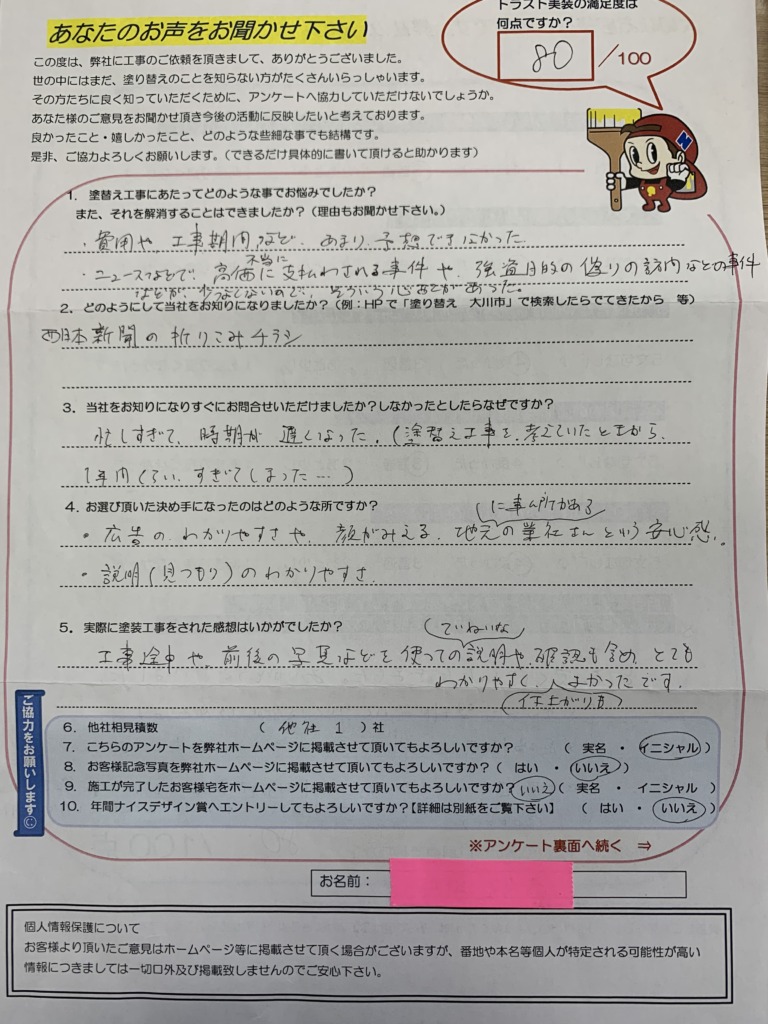 トラスト美装の満足度は
何点ですか?
80 /100
あなたのお声をお聞かせ下さい
この度は、弊社に工事のご依頼を頂きまして、ありがとうございました。
世の中にはまだ、塗り替えのことを知らない方がたくさんいらっしゃいます。
その方たちに良く知っていただくために、アンケートへ協力していただけないでしょうか。
あなた様のご意見をお聞かせ頂き今後の活動に反映したいと考えております。
良かったこと・嬉しかったこと、どのような些細な事でも結構です。
是非、ご協力よろしくお願いします。(できるだけ具体的に書いて頂けると助かります)
N
1. 塗替え工事にあたってどのような事でお悩みでしたか?
また、それを解消することはできましたか?(理由もお聞かせ下さい。)
・費用や工事期間など、あまり予想できなかった
・ニュースなどで、高価に不当に支払わされる事件や、強盗目的の偽りの訪問などの事件
などが、少なくないので、そういう心配があった。
2. どのようにして当社をお知りになりましたか?(例:HPで「塗り替え 大川市」で検索したらでてきたから 等)
西日本新聞の折りこみチラシ
3. 当社をお知りになりすぐにお問合せいただけましたか?しなかったとしたらなぜですか?
忙しすぎて、時期が遅くなった。(塗替え工事を、考えていたときから、
1年間くらい、すぎてしまった…)
4. お選び頂いた決め手になったのはどのような所ですか?
・広告のわかりやすさや、顔がみえる、地元に事ム所がある の業社さんという安心感。
・説明(見つもり)のわかりやすさ
5. 実際に塗装工事をされた感想はいかがでしたか?
(ていねいな)
工事途中や、前後の写真などを使っての説明や、確認も含め、とても
わかりやすく、よかったです。
(仕上がりも)
ご協力をお願いします☺
6. 他社相見積数 ( 他社 1 )社
7. こちらのアンケートを弊社ホームページに掲載させて頂いてもよろしいですか? ( 実名 ・ イニシャル )
8. お客様記念写真を弊社ホームページに掲載させて頂いてもよろしいですか?( はい ・ いいえ )
9. 施工が完了したお客様宅をホームページに掲載させて頂いてもよろしいですか? いいえ ( 実名 ・ イニシャル )
10. 年間ナイスデザイン賞へエントリーしてもよろしいですか?【詳細は別紙をご覧下さい】 ( はい ・ いいえ )
※アンケート裏面へ続く ⇒
お名前:
個人情報保護について
お客様より頂いたご意見はホームページ等に掲載させて頂く場合がございますが、番地や本名等個人が特定される可能性が高い
情報につきましては一切口外及び掲載致しませんのでご安心下さい。